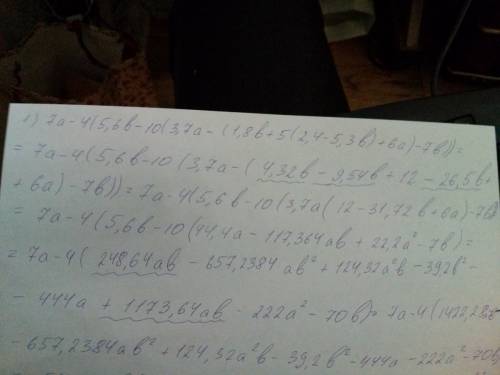 1) 7a-4(5,6b-10(3,7a-(1,8b+5(2,4-5,3b)+6a)-7b))=
= 7a-4(5,6b-10(3,7a-(4,32b-9,54b+12-26,5b+
+6a)-7b))=7a-4(5,6b-10(3,7a(12-31,72b+6a)-7b)
= 7a-4(5,6b-10(44,4a-117,364ab+22,2a²-7b)=
= 7a-4(248,64ab-657,2384ab²+124,32a²b-392b²-
- 444a+1173,64ab-222a²-70b)= 7a-4(1422,28ab
- 657,2384ab²+124,32a²b-39,2b²-444a-222a²-70b